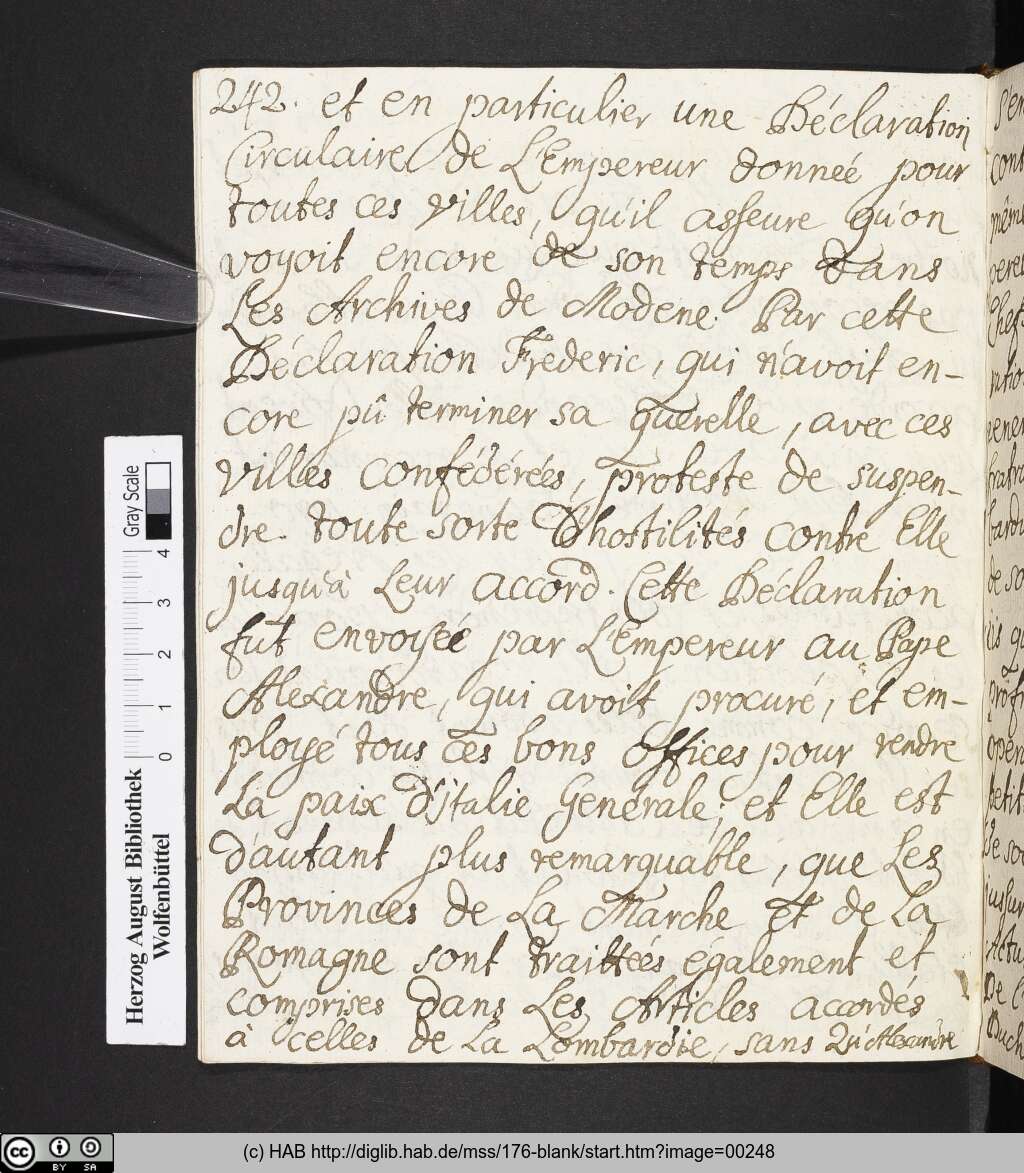 242. et en particulier une Déclaration
Circulaire de L'Empereur donneé pour
toutes ces villes, qu'il asseure qu'on
voyoit encore de son temps dans
Les Archives de Modene. Par cette
Déclaration Frederic, qui n'avoit en-
core pû terminer sa querelle, avec ces
villes confédérées, proteste de suspen-
dre toute sorte D'hostilités contre Elle
jusqu'à Leur accord. Cette Déclaration
fut envoyée par L'Empereur au Pape
Alexandre, qui avoit procuré, et em-
ployé tous ces bons offices pour rendre
La paix d'jtalie Generale; et Elle est
d'autant plus remarquable, que Les
Provinces de La Marche et de La
Romagne sont traittées également et
comprises dans Les Articles accordés
à celles de La Lombardie, sans Qu'Alexandre
Herzog August Bibliothek
Wolfenbüttel
0 1 2 3 4
Gray Scale
cc BY SA
(c) HAB http://diglib.hab.de/mss/176-blank/start.htm?image=00248